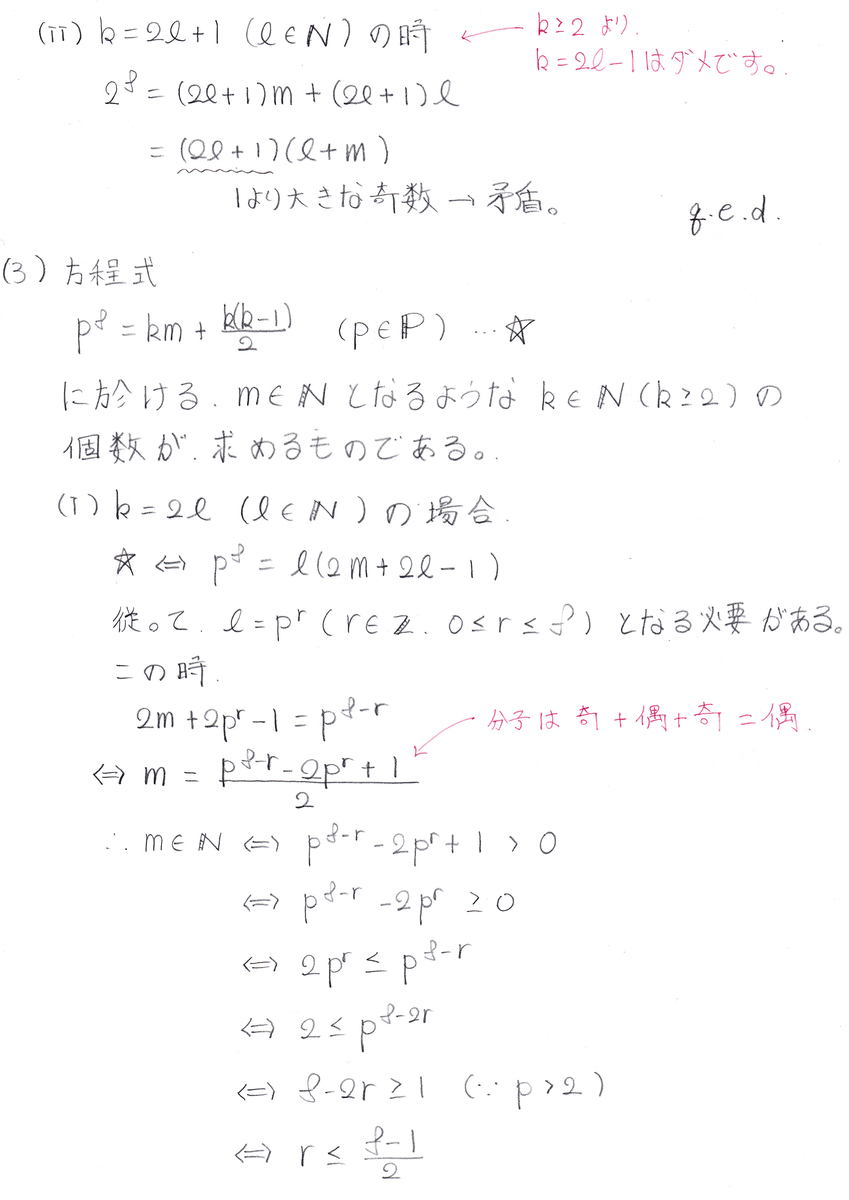 (ii) k=2ℓ+1 (ℓ∈ℕ) の時 ← k≥2 より.
k=2ℓ-1はダメです。
2^f = (2ℓ+1)m + (2ℓ+1)ℓ
= (2ℓ+1)(ℓ+m)
1より大きな奇数 → 矛盾。
q.e.d.
(3) 方程式
p^f = km + k(k-1)/2 (p∈ℙ) … ☆
に於ける. m∈ℕ となるような k∈ℕ (k≥2) の
個数が. 求めるものである。
(i) k=2ℓ (ℓ∈ℕ) の場合.
☆ ⇔ p^f = ℓ(2m+2ℓ-1)
従って. ℓ=p^r (r∈ℤ. 0≤r≤f) となる必要がある。
この時.
2m+2p^r-1 = p^{f-r}
分子は 奇+偶+奇=偶.
⇔ m = (p^{f-r}-2p^r+1)/2
∴ m∈ℕ ⇔ p^{f-r}-2p^r+1 > 0
⇔ p^{f-r}-2p^r ≥ 0
⇔ 2p^r ≤ p^{f-r}
⇔ 2 ≤ p^{f-2r}
⇔ f-2r ≥ 1 (∵ p>2)
⇔ r ≤ (f-1)/2